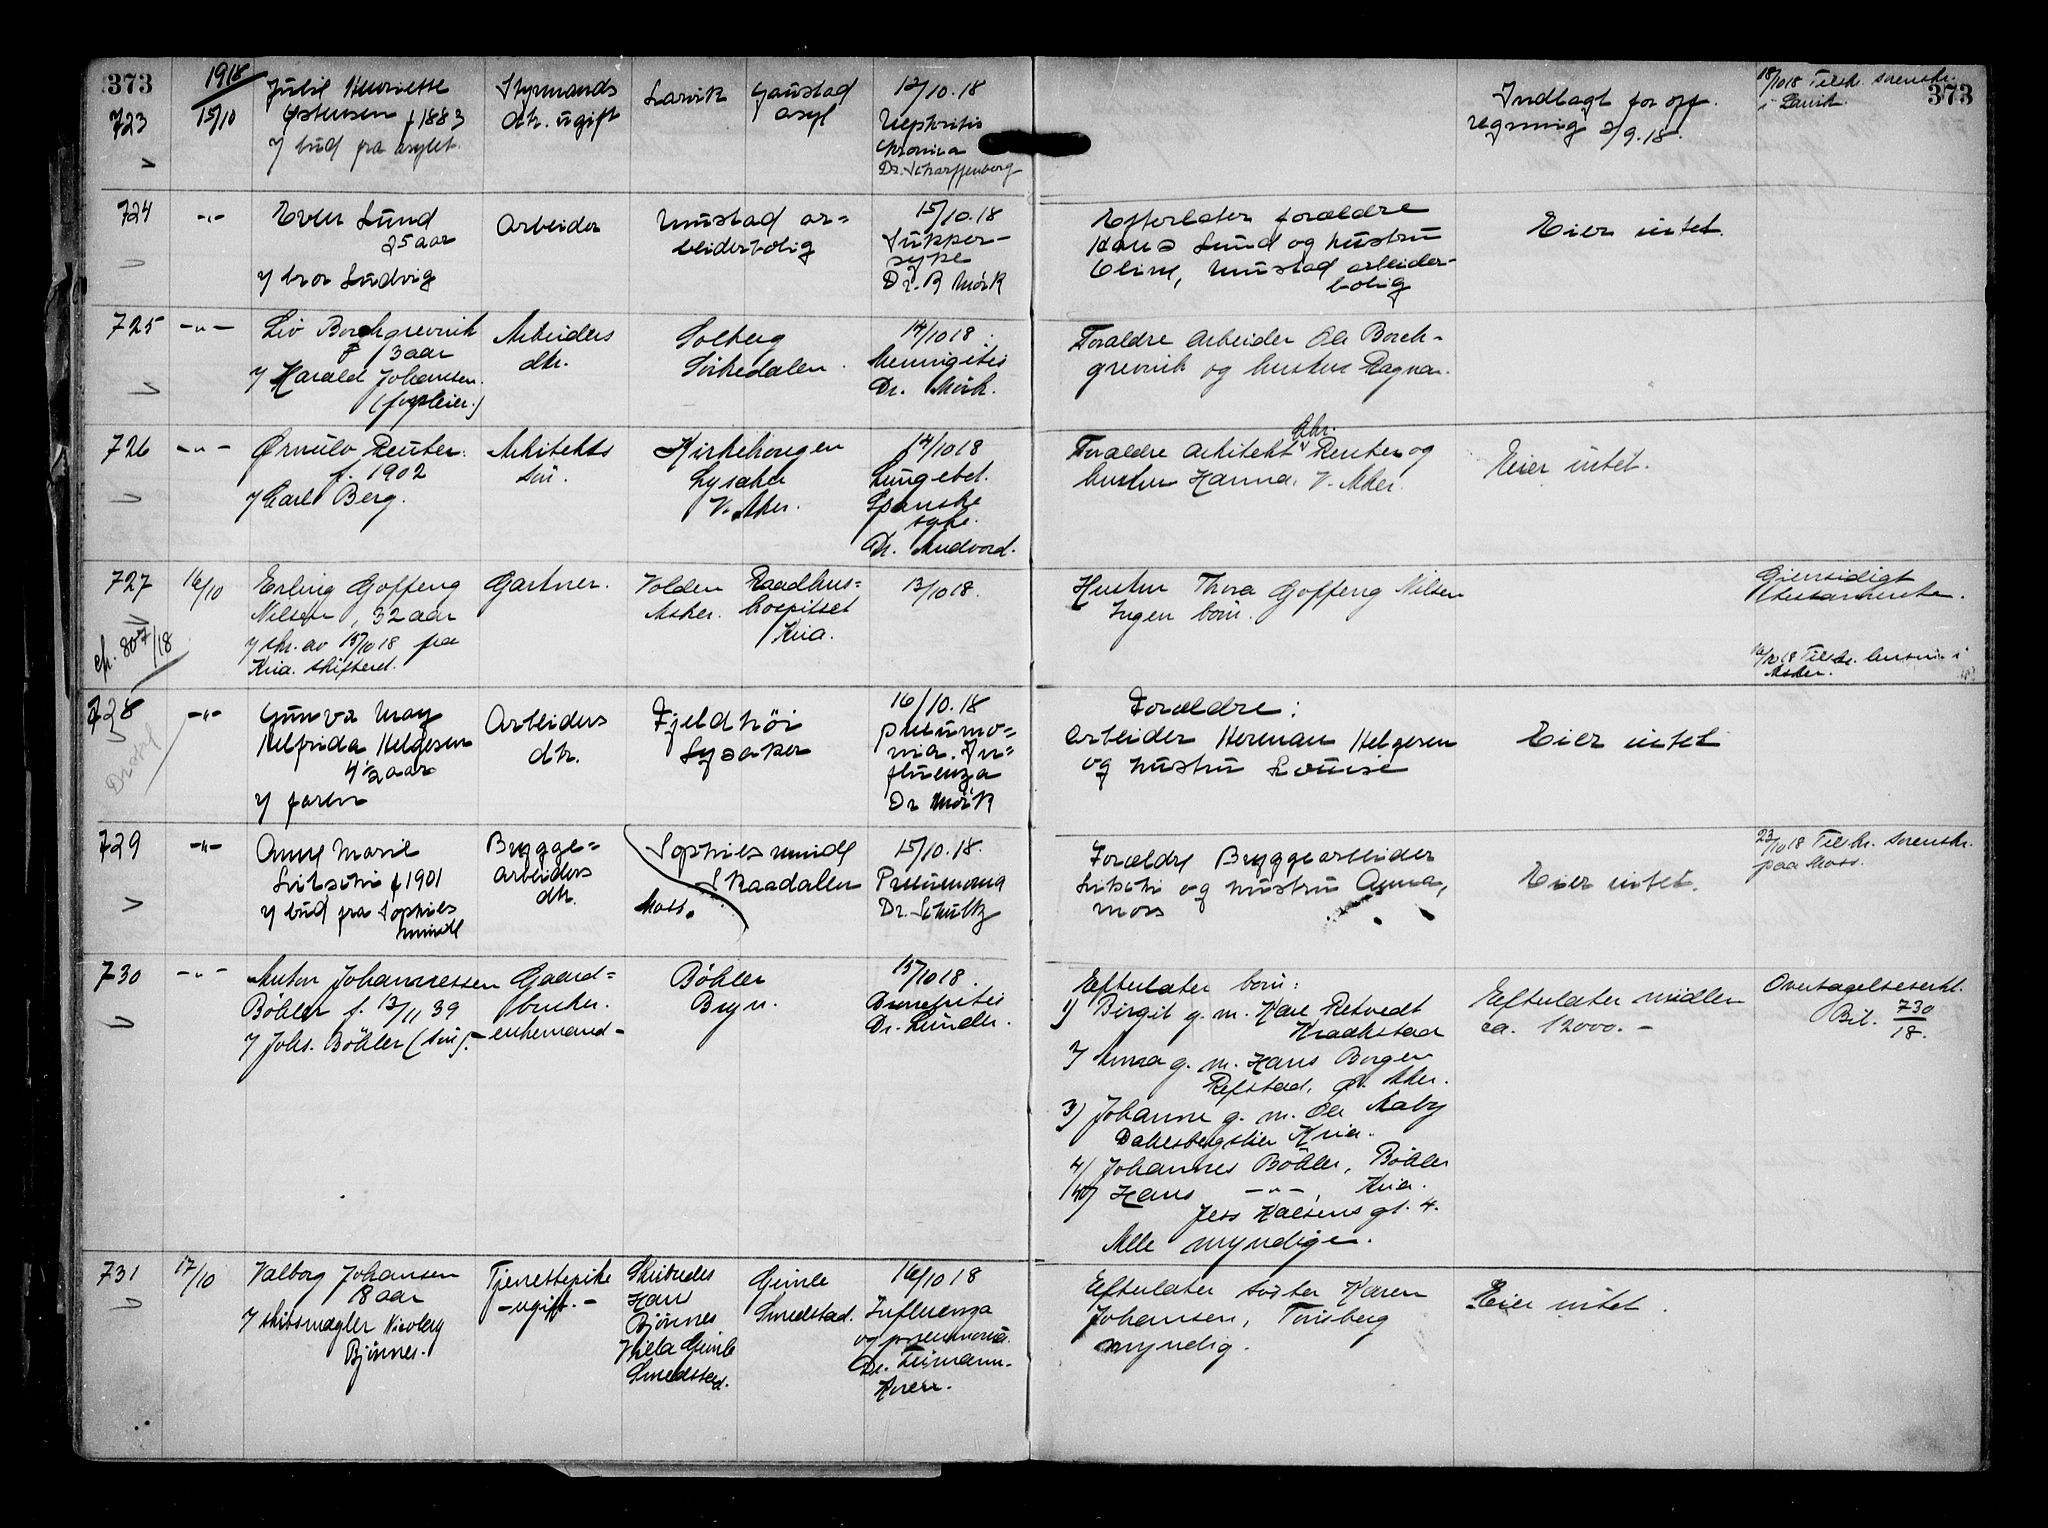 373
1918
373
723
15/10
Julie Henriette
Østensen f 1883
v/ bud fra asylet.
Styrmands
dtr. ugift
Larvik
Gaustad
asyl
12/10.18
Nephritis
chronica
Dr. Scharffenberg
Indlagt for off.
regning 2/9.18.
18/10 18 Tilskr. sorenskr.
i Larvik.
724
-"-
Even Lund
25 aar
v/ bror Ludvig
Arbeider
Mustad ar=
beiderbolig
15/10.18
Sukker-
syke
Dr. R Mörk
Efterlater forældre
Hans Lund og hustru
Oline, Mustad arbeider-
bolig
Eier intet.
725
-"-
Liv Borchgrevink
3 aar
v/ Harald Johansen.
(fopleier.)
Arbeiders
dtr.
Solberg
Sörkedalen.
14/10 18.
Meningitis
Dr. Mörk.
Forældre arbeider Ole Borch-
grevink og hustru Ragna.
726
-"-
Ørnulv Reuter.
f. 1902
v/ Carl Berg.
Arkitekts
sön.
Kirkehougen
Lysaker
V. Aker.
14/10 18
Lungebet.
Spanske
syke.
Dr. Andvord.
Forældre arkitekt Chr. Reuter og
hustru Hanna. V. Aker.
Eier intet.
727
cfr. 807/18
16/10
Erling Goffeng
Nilsen, 32 aar
v/ skr. av 15/10 18 fra
Kria. skifteret.
Gartner.
Volden
Asker.
Raadhus=
hospitset
Kria.
13/10 18.
Hustru Thora Goffeng Nilsen
Ingen börn.
Gjensidigt
testamente.
16/10 18 Tilskr. lensm. i
Asker.
728
-"-
Gunvor May
Helfrida Helgesen
4 1/2 aar
v/ faren
Arbeiders
dtr.
Fjeldhöi
Lysaker
16/10.18
pneumo=
nia. In=
fluenza
Dr Mörk
Forældre:
Arbeider Herman Helgesen
og hustru Louise
Eier intet
729
-"-
Anne Marie
f 1901
v/ bud fra Sophies
minde
Brygge=
arbeiders
dtr.
Sophies minde
Skaadalen
Moss.
15/10.18.
Pneumonia
Dr. Schultz
Forældre Bryggearbeider
og hustru Anna,
Moss
Eier intet.
23/10 18 Tilskr. sorenskr.
paa Moss.
730
-"-
Anton Johannessen
Böhler f. 13/11 39
v/ Johs. Böhler (sön).
Gaard=
bruker.
-enkemand-
Böhler
Bryn.
15/10 18.
Dr. Lunde.
Efterlater börn:
1) Birgit g. m. Karl Retvedt
Kraakstad
2) Anna g. m. Hans Borgen
Refstad, Ø. Aker.
3) Johanne g. m. Ole Aaby
Dælesbergstien Kria.
4) Johannes Böhler, Böhler
5) Hans -"-, Kria.
Jess Karlsens gt. 4.
Alle myndige.
Efterlater midler
ca. 12000.-
Overtagelseserkl.
Bil. 730
18.
731
17/10
Valborg Johansen
18 aar
v/ skibsmægler Nicolay
Björnes.
Tjenestepike
-ugift.-
Skibredes
Hans
Björnes
Villa Gimle
Smedstad.
Gimle
Smedstad.
16/10 18
Influenza
og pneumonia.
Dr. Teimann-
Efterlater söster Karen
Johansen, Tönsberg
myndig.
Eier intet.